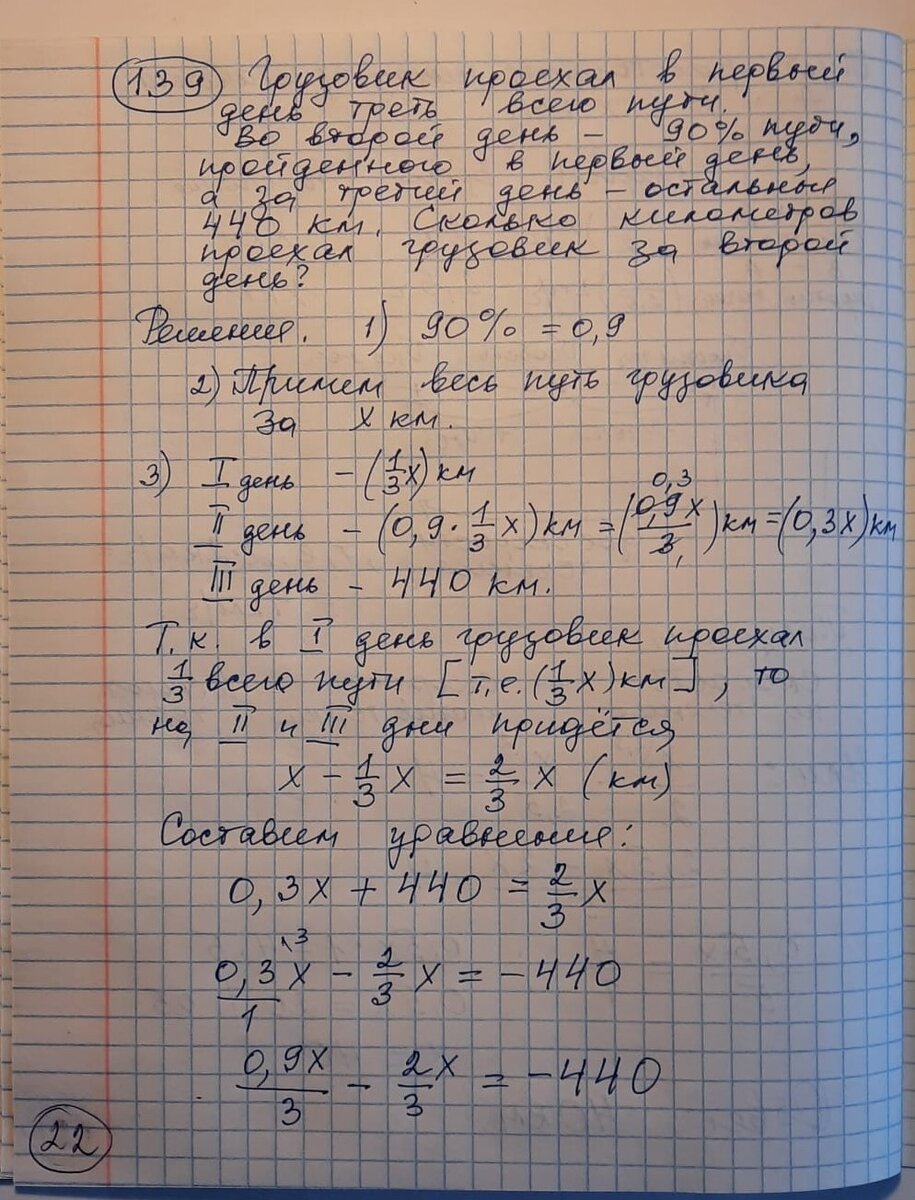 139 Грузовик проехал в первый
день треть всего пути.
Во второй день – 90% пути,
пройденного в первый день,
а за третий день – остальные
440 км. Сколько километров
проехал грузовик за второй
день?
Решение. 1) 90% = 0,9
2) Примем весь путь грузовика
за x км.
3) I день – (1/3 x) км
II день – (0,9 · 1/3 x) км = (0,9x/3) км = (0,3x) км
0,3 1
III день – 440 км.
Т.к. в I день грузовик проехал
1/3 всего пути [т.е. (1/3 x) км], то
на II и III дни придётся
x – 1/3 x = 2/3 x (км)
Составим уравнение:
0,3x + 440 = 2/3 x
0,3x/1 \3 – 2/3 x = –440
0,9x/3 – 2x/3 = –440
22